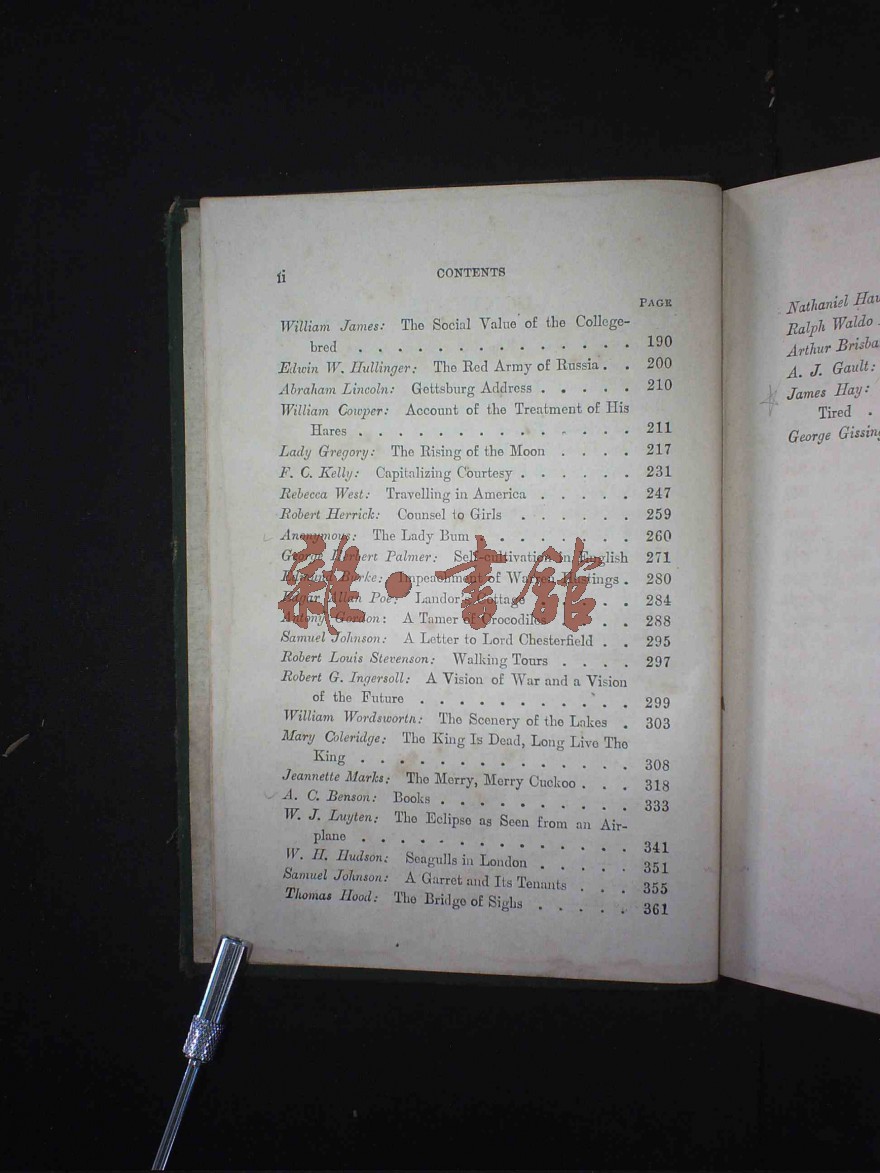 ii
CONTENTS
PAGE
William James: The Social Value of the College-
bred . . . . . . . . . . . . . . 190
Edwin W. Hullinger: The Red Army of Russia . . 200
Abraham Lincoln: Gettsburg Address . . . . . 210
William Cowper: Account of the Treatment of His
Hares . . . . . . . . . . . . . . 211
Lady Gregory: The Rising of the Moon . . . . 217
F. C. Kelly: Capitalizing Courtesy . . . . . . 231
Rebecca West: Travelling in America . . . . . 247
Robert Herrick: Counsel to Girls . . . . . . 259
Anonymous: The Lady Bum . . . . . . . . 260
George Herbert Palmer: Self-cultivation in English 271
Edmund Burke: Impeachment of Warren Hastings . 280
Edgar Allan Poe: Landor's Cottage . . . . . 284
Antony Gordon: A Tamer of Crocodiles . . . . 288
Samuel Johnson: A Letter to Lord Chesterfield . . 295
Robert Louis Stevenson: Walking Tours . . . . 297
Robert G. Ingersoll: A Vision of War and a Vision
of the Future . . . . . . . . . . . 299
William Wordsworth: The Scenery of the Lakes . 303
Mary Coleridge: The King Is Dead, Long Live The
King . . . . . . . . . . . . . . 308
Jeannette Marks: The Merry, Merry Cuckoo . . . 318
A. C. Benson: Books . . . . . . . . . . 333
W. J. Luyten: The Eclipse as Seen from an Air-
plane . . . . . . . . . . . . . . 341
W. H. Hudson: Seagulls in London . . . . . 351
Samuel Johnson: A Garret and Its Tenants . . . 355
Thomas Hood: The Bridge of Sighs . . . . . 361
雜·書館
Nathaniel
Ralph Waldo
Arthur
A. J. Gault:
James Hay:
Tired .
George